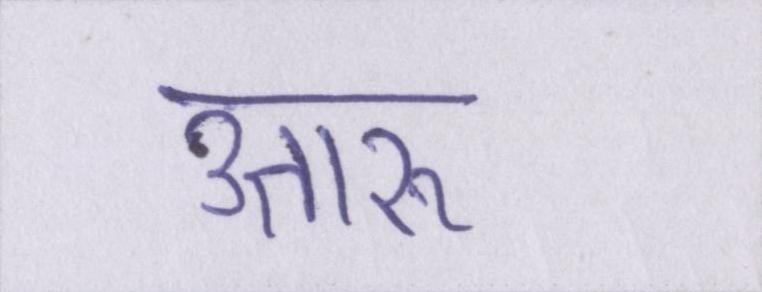 उतारू